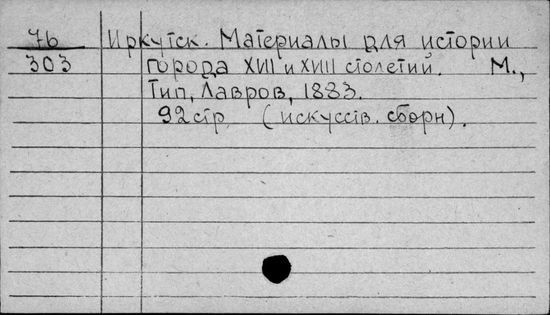 76 Иркутск. Материалы для истории
303 города XVII и XVIII столетий. М.,
Тип, Лавров, 1883.
92 стр. (искусств. сборн).